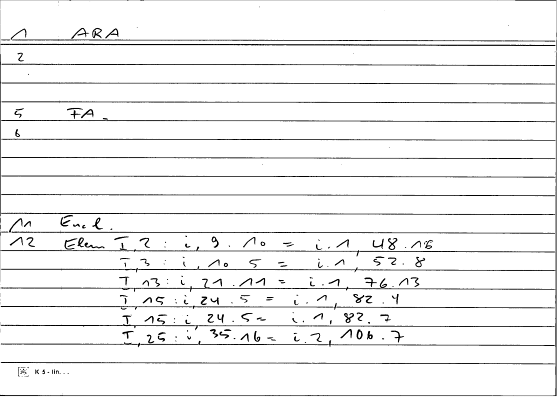 1 ARA
2
5 FA.
6
11 Eucl.
12 Elem I, 2 : i, 9.10 = i.1, 48.16
I, 3 : i, 10.5 = i.1, 52.8
I, 13 : i, 21.11 = i.1, 76.13
I, 15 : i, 24.5 = i.1, 82.4
I, 15 : i, 24.5 = i.1, 82.7
I, 25 : i, 35.16 = i.2, 106.7
K 5 - lin...